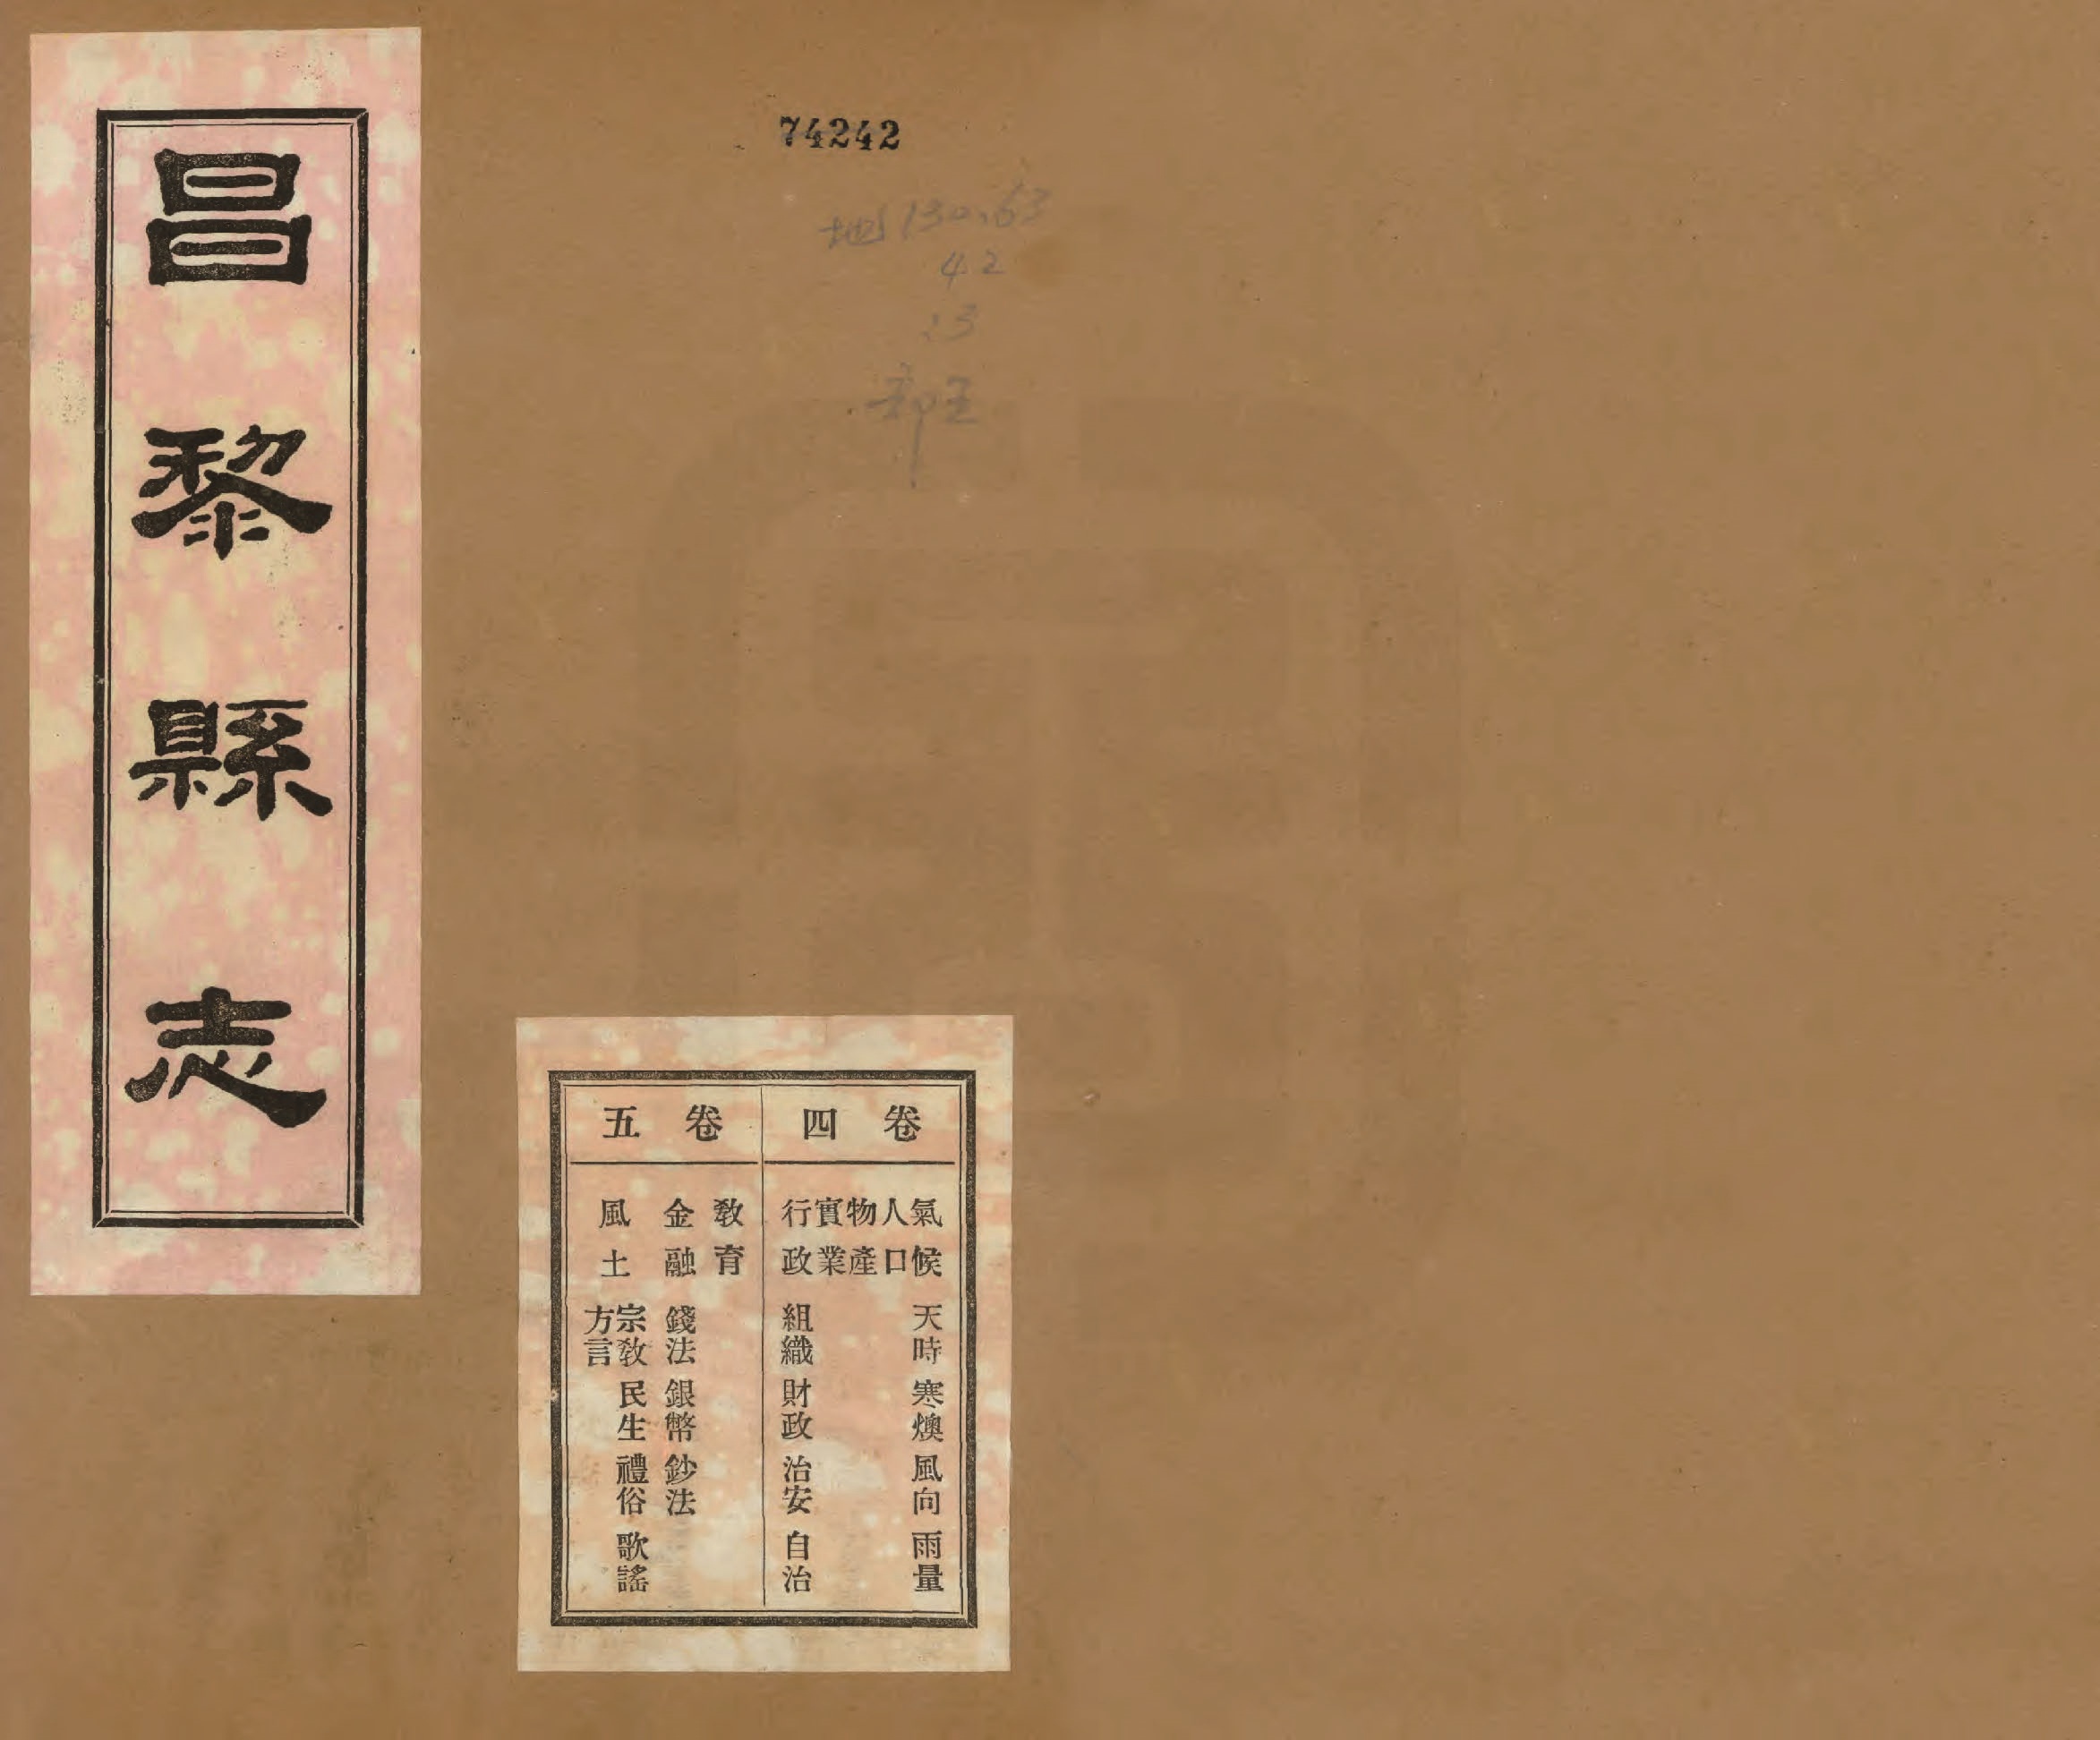 昌黎縣志
74242
地130.63
42
23
卷四
氣候 天時 寒燠 風向 雨量
人口
物產
實業
行政 組織 財政 治安 自治
卷五
教育
金融 錢法 銀幣 鈔法
風土 宗教 民生 禮俗 歌謠
方言